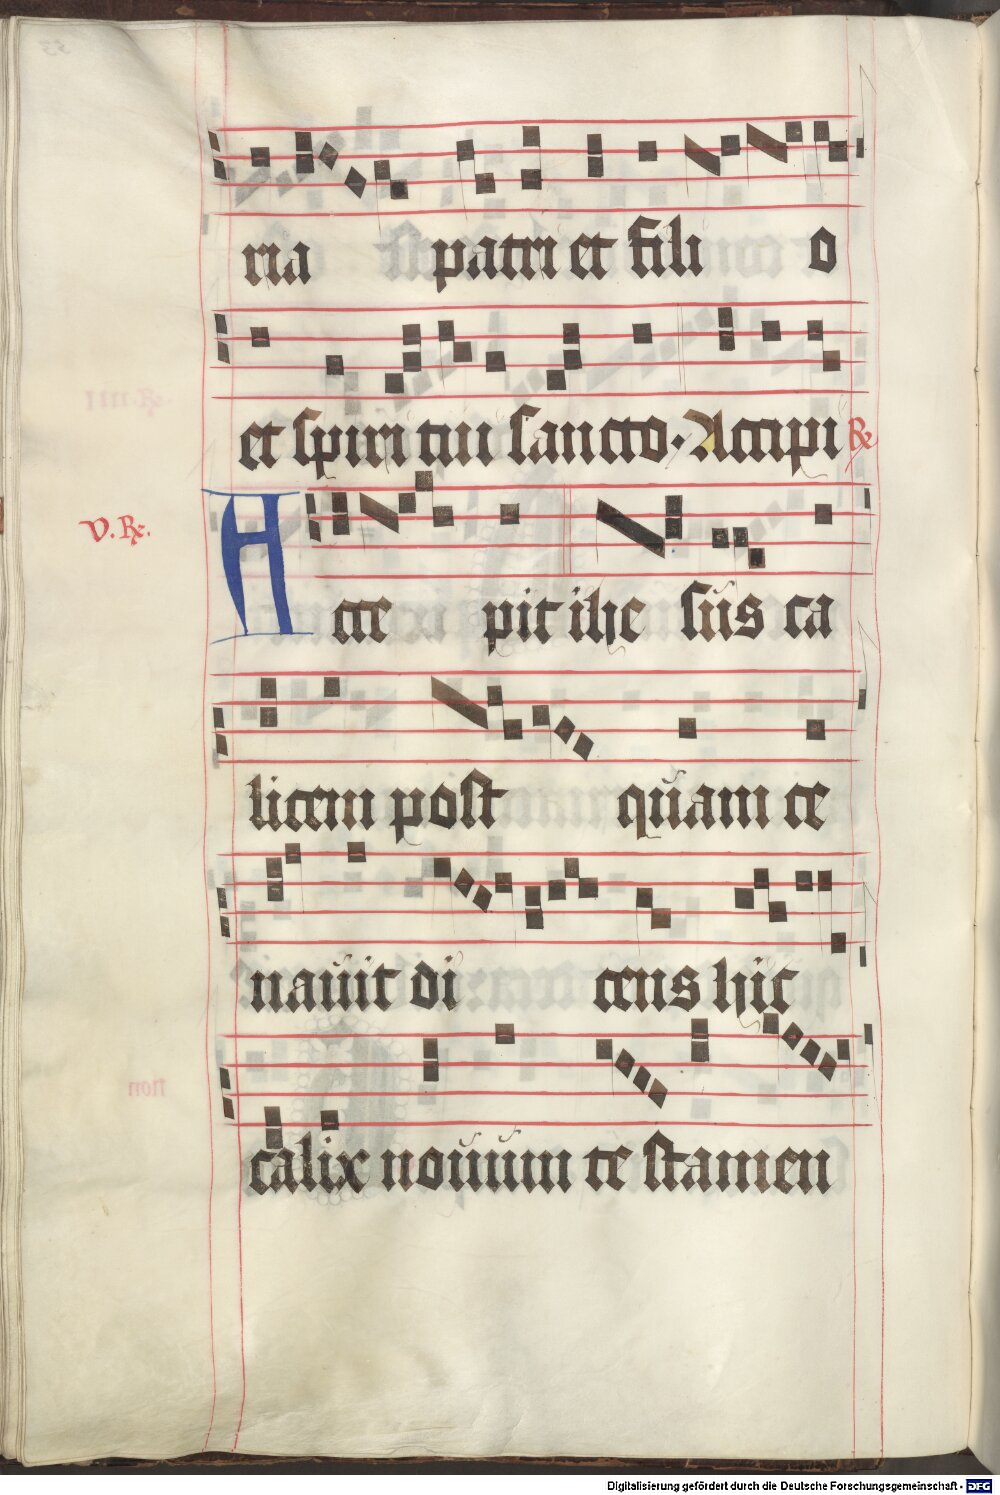 ria patri et fili o
et spiri tui sancto. Accipi ℟
V. ℟.
A cce pit ihe sus ca
licem post quam ce
nauit di cens hic
calix nouum te stamen
Digitalisierung gefördert durch die Deutsche Forschungsgemeinschaft - DFG